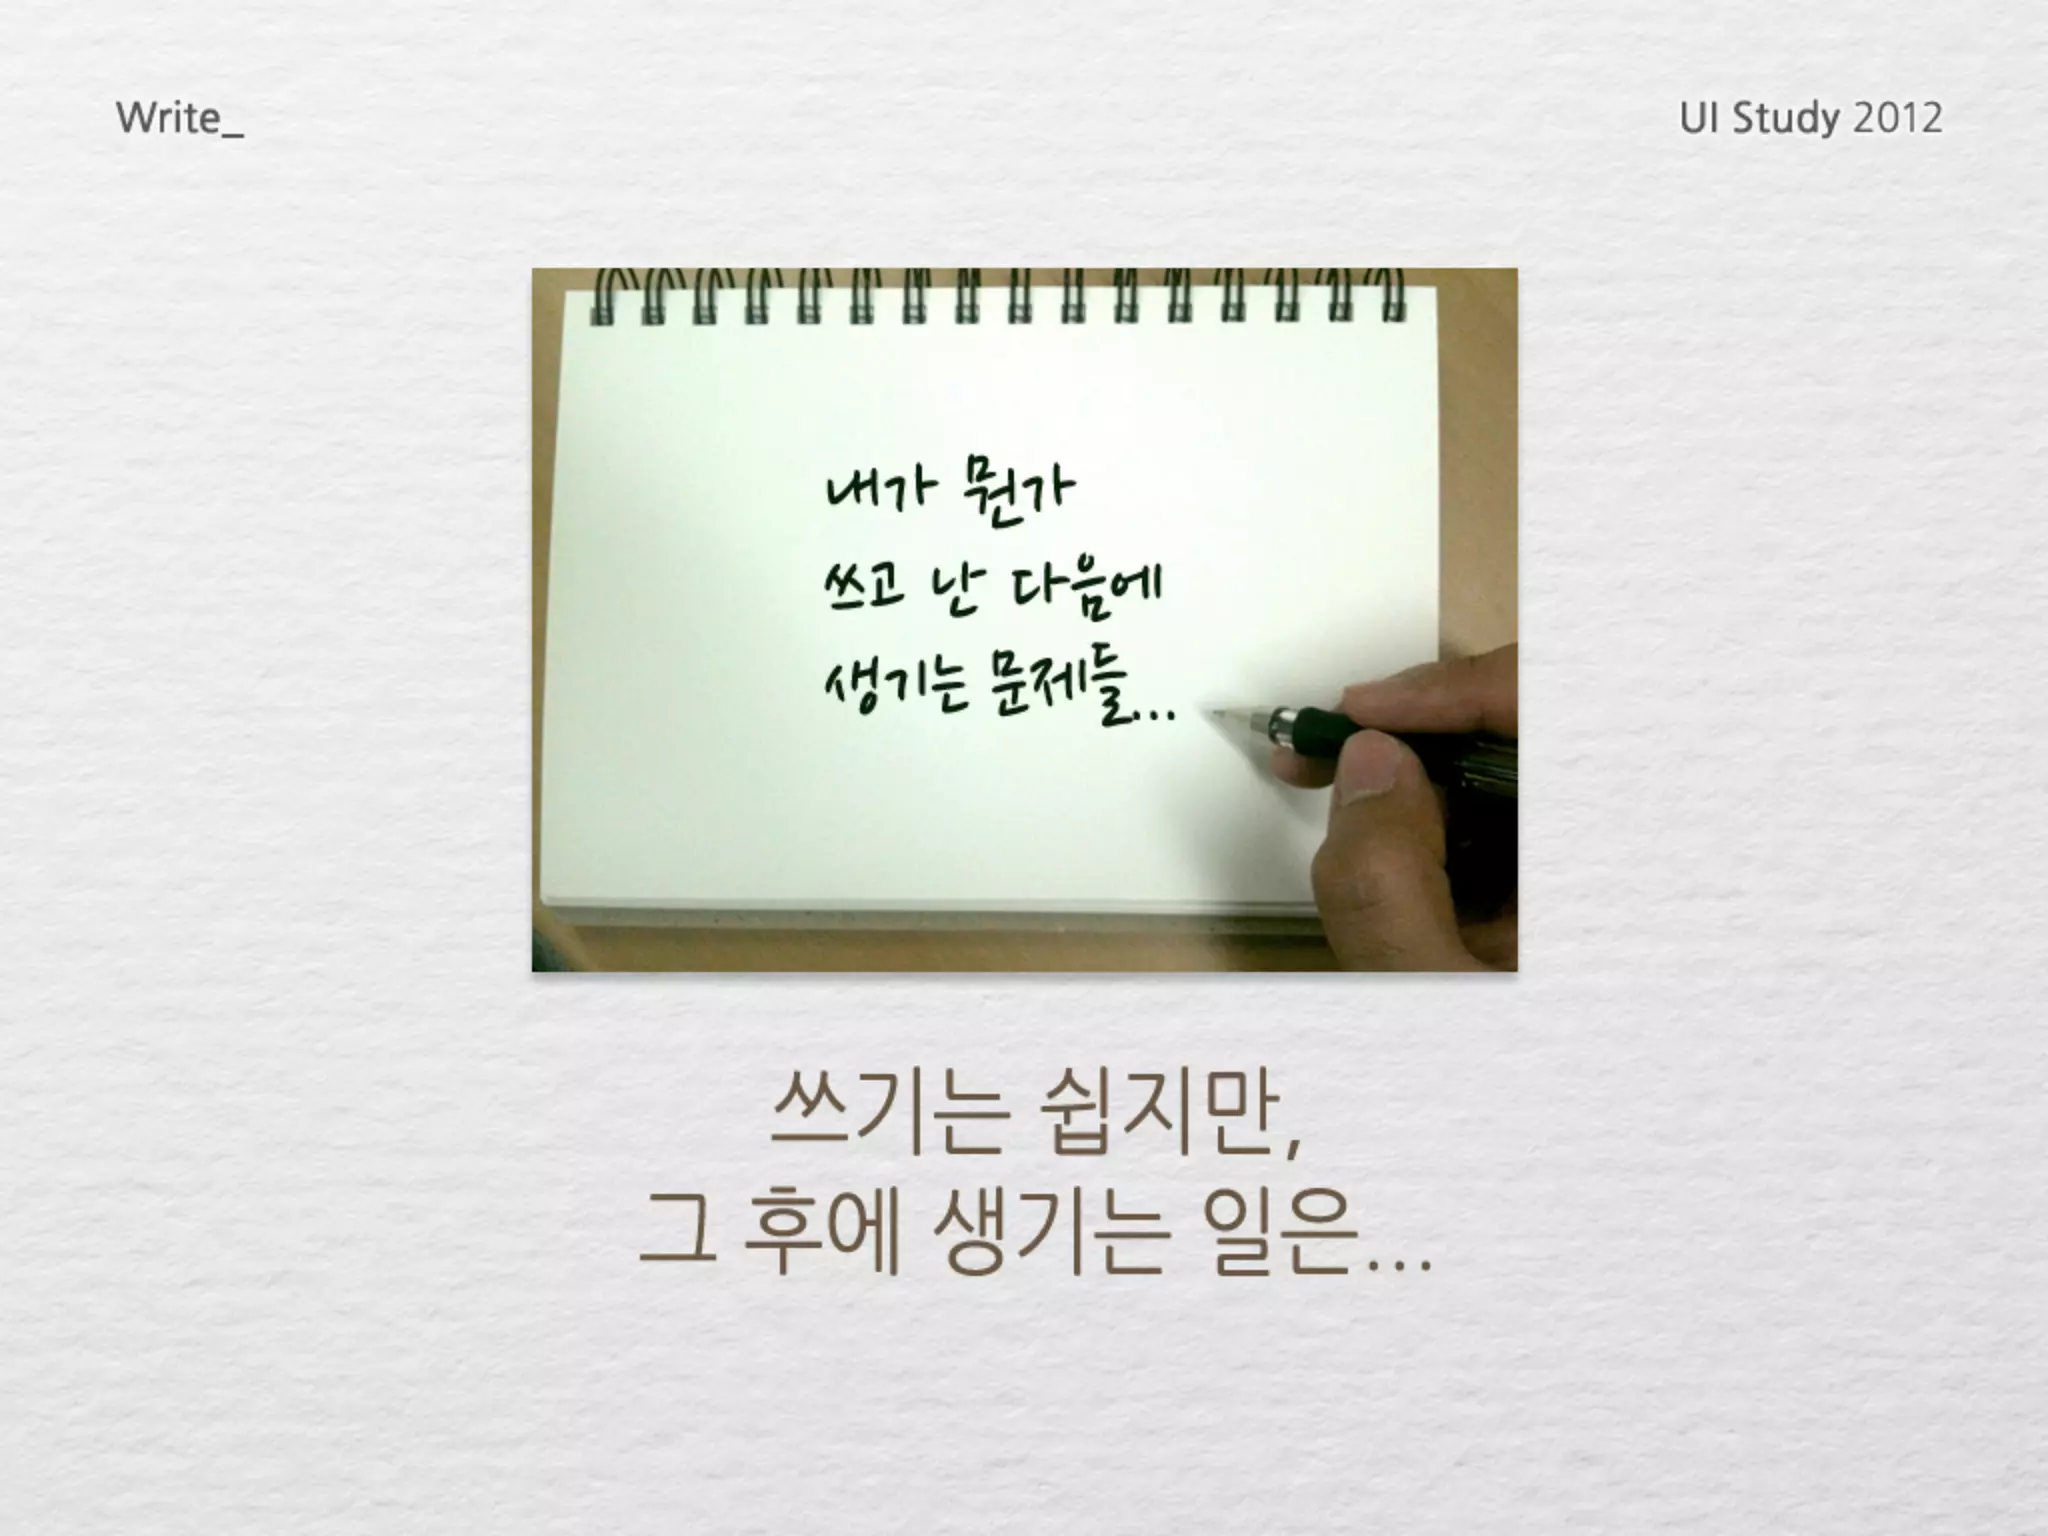 Write_
UI Study 2012
내가 뭔가
쓰고 난 다음에
생기는 문제들...
쓰기는 쉽지만,
그 후에 생기는 일은...